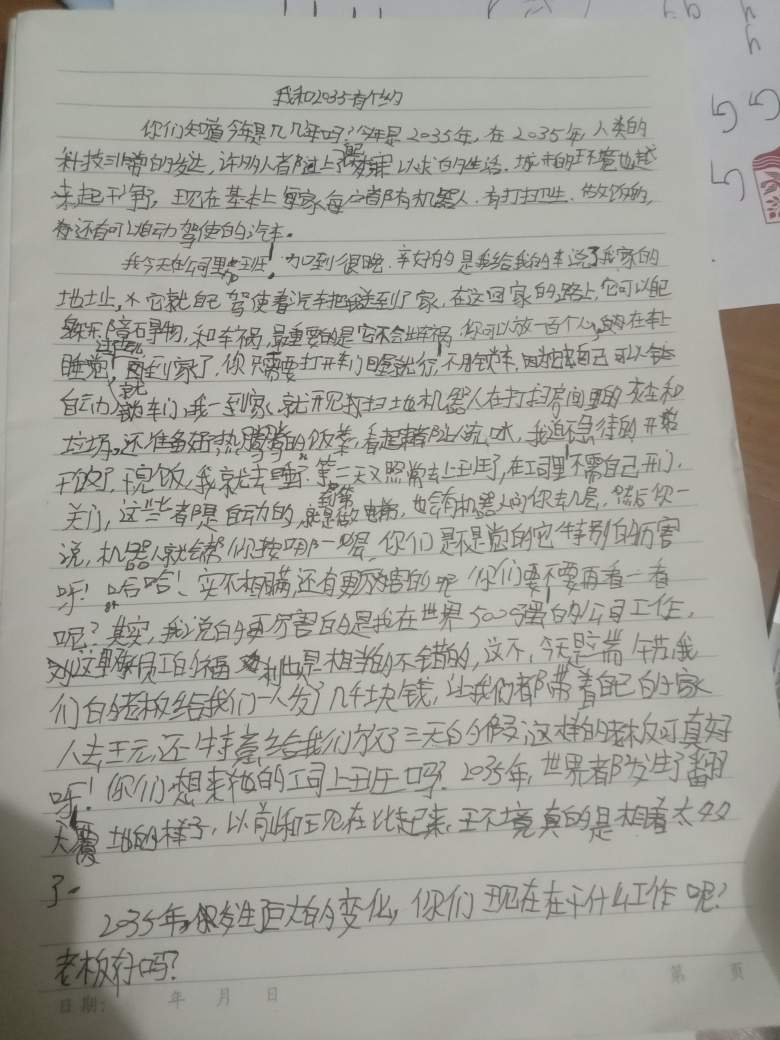 我和2035有个约
你们知道今年是几几年吗？今年是2035年，在2035年，人类的
科技非常的发达，许多人都过上了梦寐以求的生活。城市的环境也越
来越干净，现在基本上每家每户都有机器人，有打扫卫生、做饭的，
还有可以自动驾使的汽车。
我今天在公司里加班，加到很晚，幸好的是我给我的车说了我家的
地址，它就自己驾使着汽车把我送到了家，在这回家的路上，它可以
躲开障碍物，和车祸，最重要的是它不会出车祸，你可以放一百个心，在车上
睡觉！回到家了，你只需要打开车门就行，不用锁车，因为它自己可以
自动锁车门，我一到家，就开见打扫地机器人在打扫房间里的灰尘和
垃圾。还准备好热腾腾的饭菜，看起来都让人流口水，我迫不急待的开始
干饭了，干完饭，我就去睡了。第二天又照常去上班了，在公司里不需自己开门、
关门，这些都是自动的，就是做电梯，也会有机器人问你去几层，然后你一
说，机器人就会帮你按哪一层，你们是不是觉的它特别的厉害
呀！哈哈！实不相瞒，还有更厉害的呢，你们要不要再看一看
呢？其实，我说的更厉害的是我在世界500强的公司工作，
这里员工的福利也是相当的不错的，这不，今天是端午节，我
们的老板给我们一人发了几千块钱，让我们都带着自己的家
人去玩，还特意给我们放了三天的假，这样的老板可真好
呀！你们想来我的公司上班吗？2035年，世界都发生了翻
天覆地的样子，以前和现在比起来，环境真的是相差太多
了。
2035年，发生巨大的变化，你们现在在干什么工作呢？
老板好吗？
日期： 年 月 日
第 页